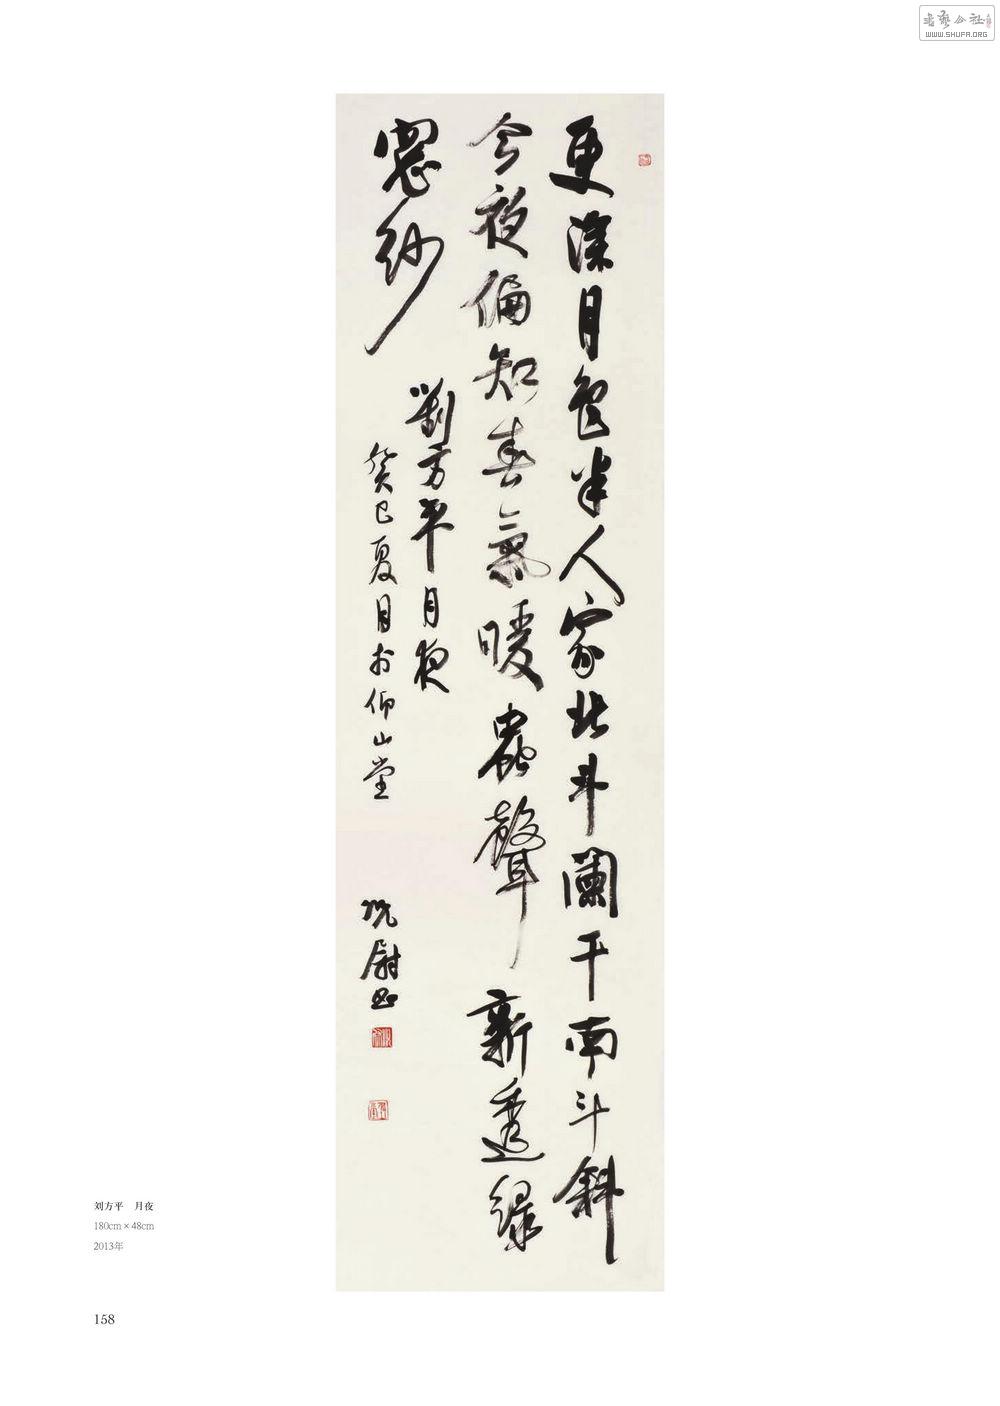 更深月色半人家北斗闌干南斗斜
今夜偏知春氣暖蟲聲新透綠
窗紗
劉方平月夜
癸巳夏月於仰山堂
尉書
刘方平　月夜
180cm × 48cm
2013年
158
书艺公社
WWW.SHUFA.ORG